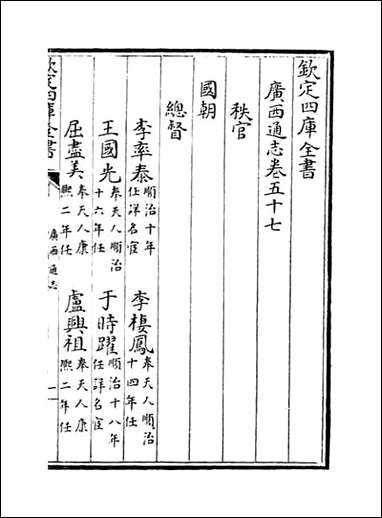 欽定四庫全書
廣西通志卷五十七
秩官
國朝
總督
李率泰順治十年任詳名宦 李棲鳳奉天人順治十四年任
王國光奉天人順治十六年任 于時躍順治十八年任詳名宦
屈盡美奉天人康熙二年任 盧興祖奉天人康熙二年任
欽定四庫全書 廣西通志